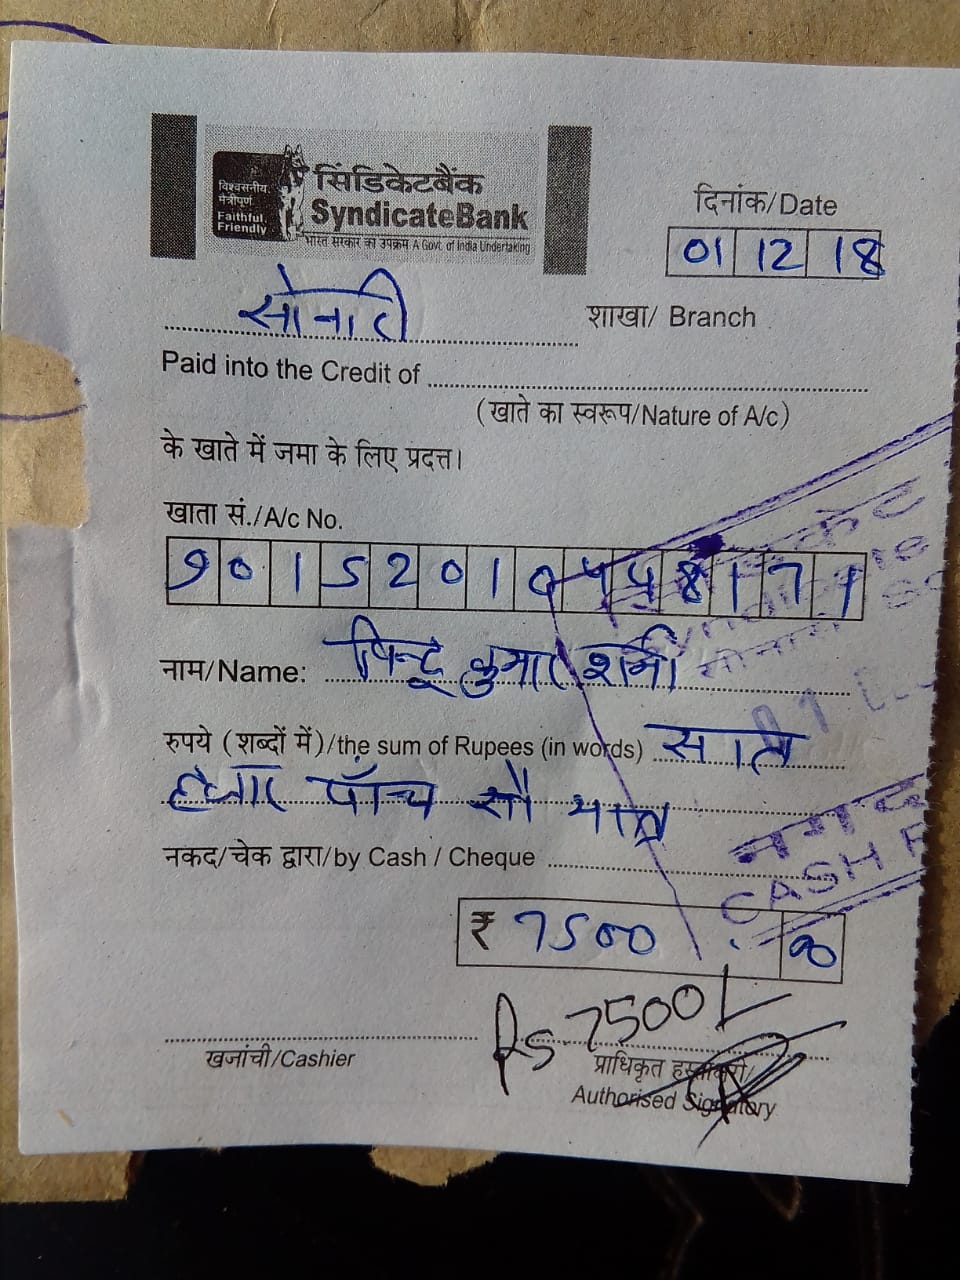 विश्वसनीय, मैत्रीपूर्ण
Faithful, Friendly
सिंडिकेटबैंक
SyndicateBank
भारत सरकार का उपक्रम A Govt. of India Undertaking
दिनांक/Date
01 12 18
सोनारी शाखा/ Branch
Paid into the Credit of
(खाते का स्वरूप/Nature of A/c)
के खाते में जमा के लिए प्रदत्त।
खाता सं./A/c No.
नाम/Name: पिन्टू कुमार शर्मा
रुपये (शब्दों में)/the sum of Rupees (in words) सात
हजार पाँच सौ मात्र
नकद/चेक द्वारा/by Cash / Cheque
नगद
CASH
₹ 7500 00
Rs 7500/-
खजांची/Cashier
प्राधिकृत हस्ताक्षरी/
Authorised Signatory